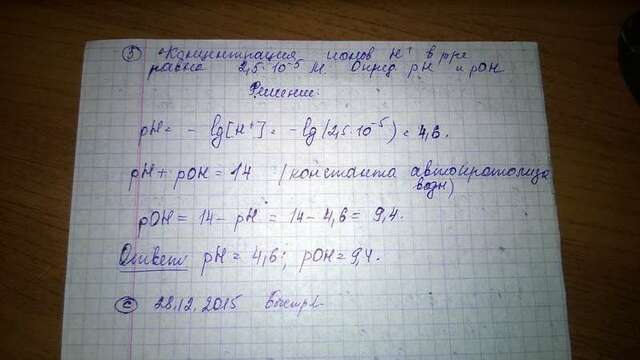 ③ Концентрация ионов H⁺ в р-ре
равна 2,5·10⁻⁵ М. Опред pH и pOH
Решение:
pH = - lg[H⁺] = -lg(2,5·10⁻⁵) = 4,6.
pH + pOH = 14 (константа автопротолиза
воды)
pOH = 14 - pH = 14 - 4,6 = 9,4.
Ответ: pH = 4,6; pOH = 9,4.
© 28.12.2015